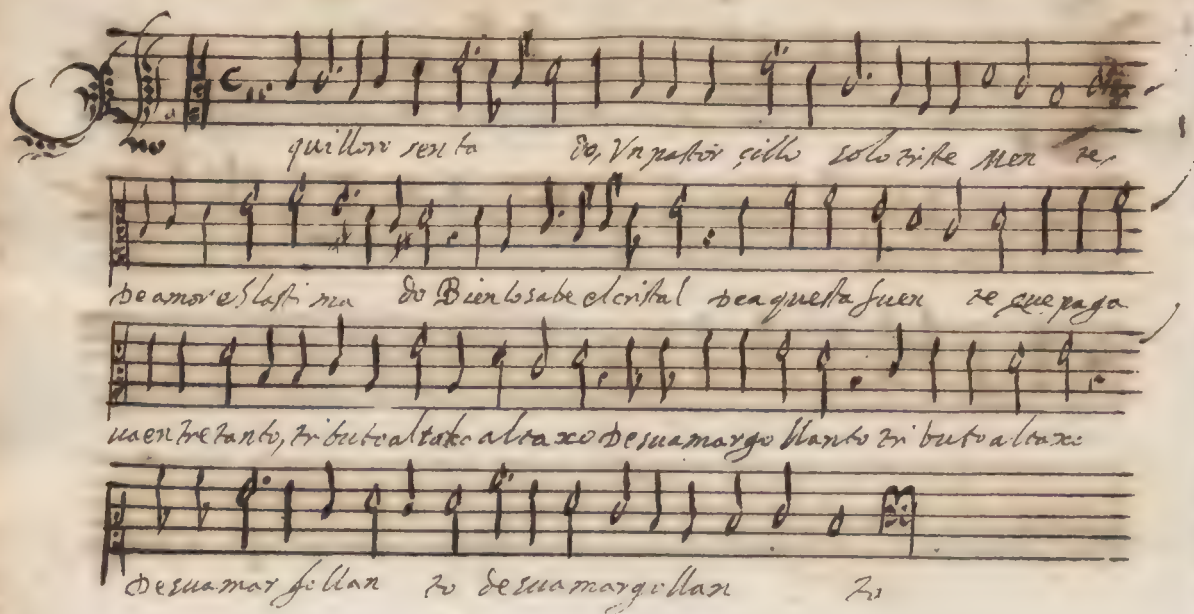 no quilloro senta do, Vn pastor çillo solo triste Men te,
De amor es lasti ma do Bien lo sabe el cristal De aquesta fuen te que paga
ua en tre tanto, tributo al taxo De su amargo llanto tri buto al taxo
De su amar go llan to de su amargo llan to